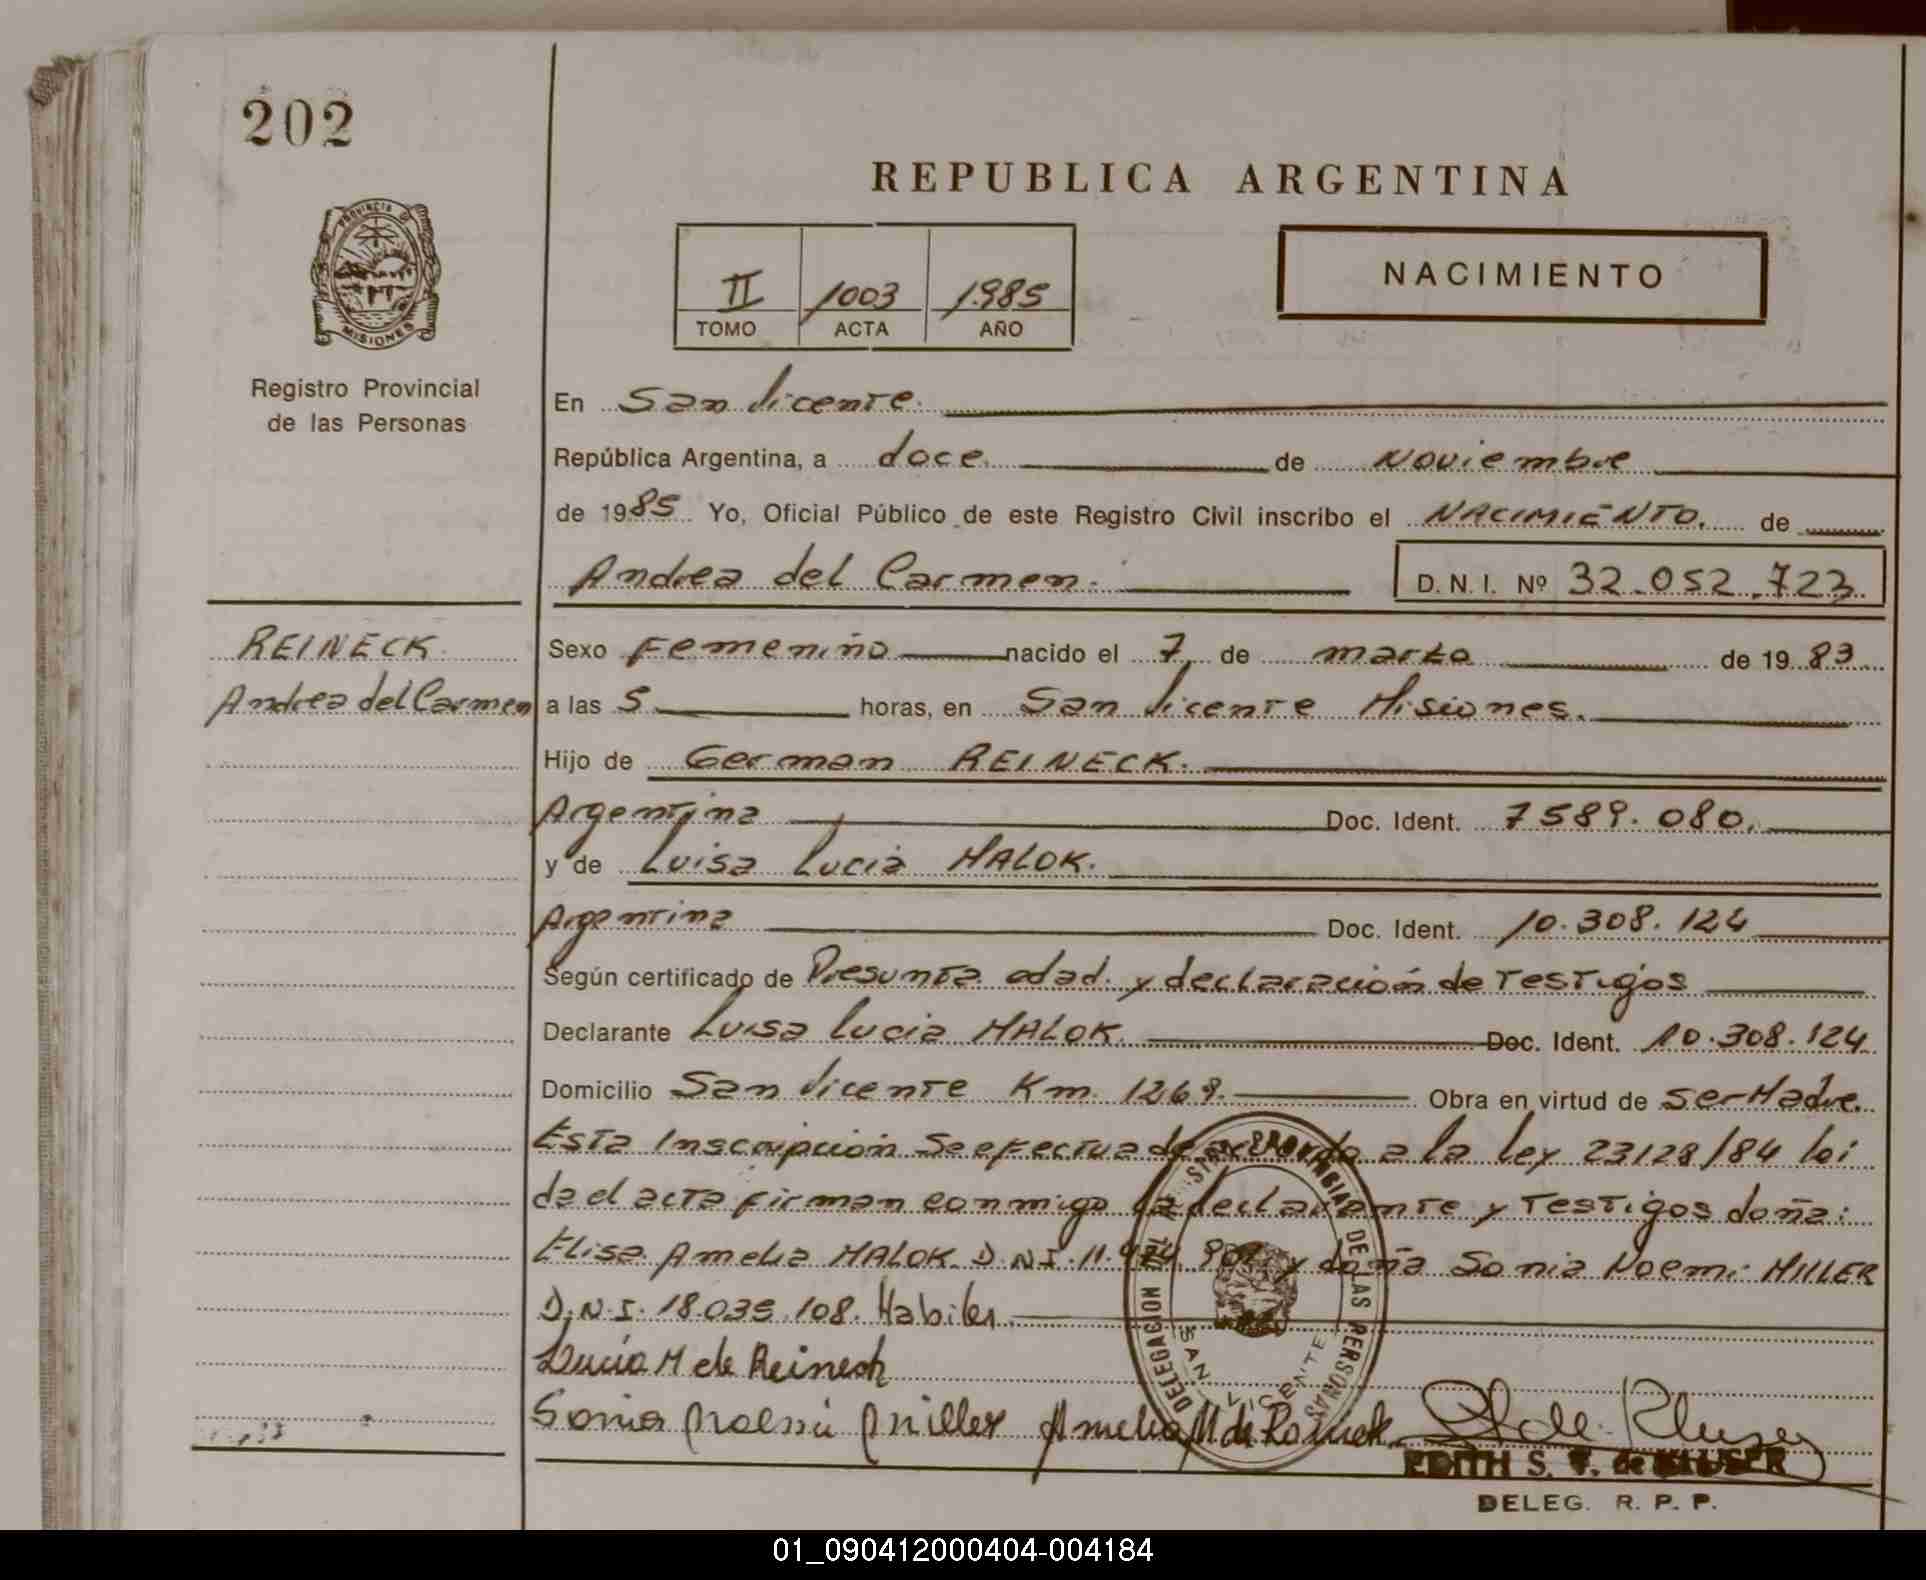 202
REPUBLICA ARGENTINA
PROVINCIA D
MISIONES
II 1003 1985
TOMO ACTA AÑO
NACIMIENTO
Registro Provincial
de las Personas
En San Vicente.
República Argentina, a doce. de Noviembre
de 1985 Yo, Oficial Público de este Registro Civil inscribo el NACIMIENTO. de
Andrea del Carmen. D. N. I. Nº 32.052.723
REINECK
Andrea del Carmen
Sexo Femenino nacido el 7 de marzo de 1983
a las 5 horas, en San Vicente Misiones.
Hijo de German REINECK.
Argentina Doc. Ident. 7589.080.
y de Luisa Lucia MALOK.
Argentina Doc. Ident. 10.308.124
Según certificado de Presunta edad. y declaración de Testigos
Declarante Luisa Lucia MALOK. Doc. Ident. 10.308.124
Domicilio San Vicente Km. 1269. Obra en virtud de ser Madre.
Esta Inscripción se efectua de acuerdo a la Ley 23128/84 lei
da el acta firman conmigo la declarante y Testigos doña:
Elisa Amelia MALOK D.N.I. 11. y doña Sonia Noemi MILLER
D.N.I. 18.039.108. Habiles
Lucía M de Reineck
Sonia Noemí Miller Amelia M de
EDITH S. T. de KLUSER
DELEG. R. P. P.
DELEGACION PROVINCIAL DE LAS PERSONAS
SAN VICENTE
01_090412000404-004184